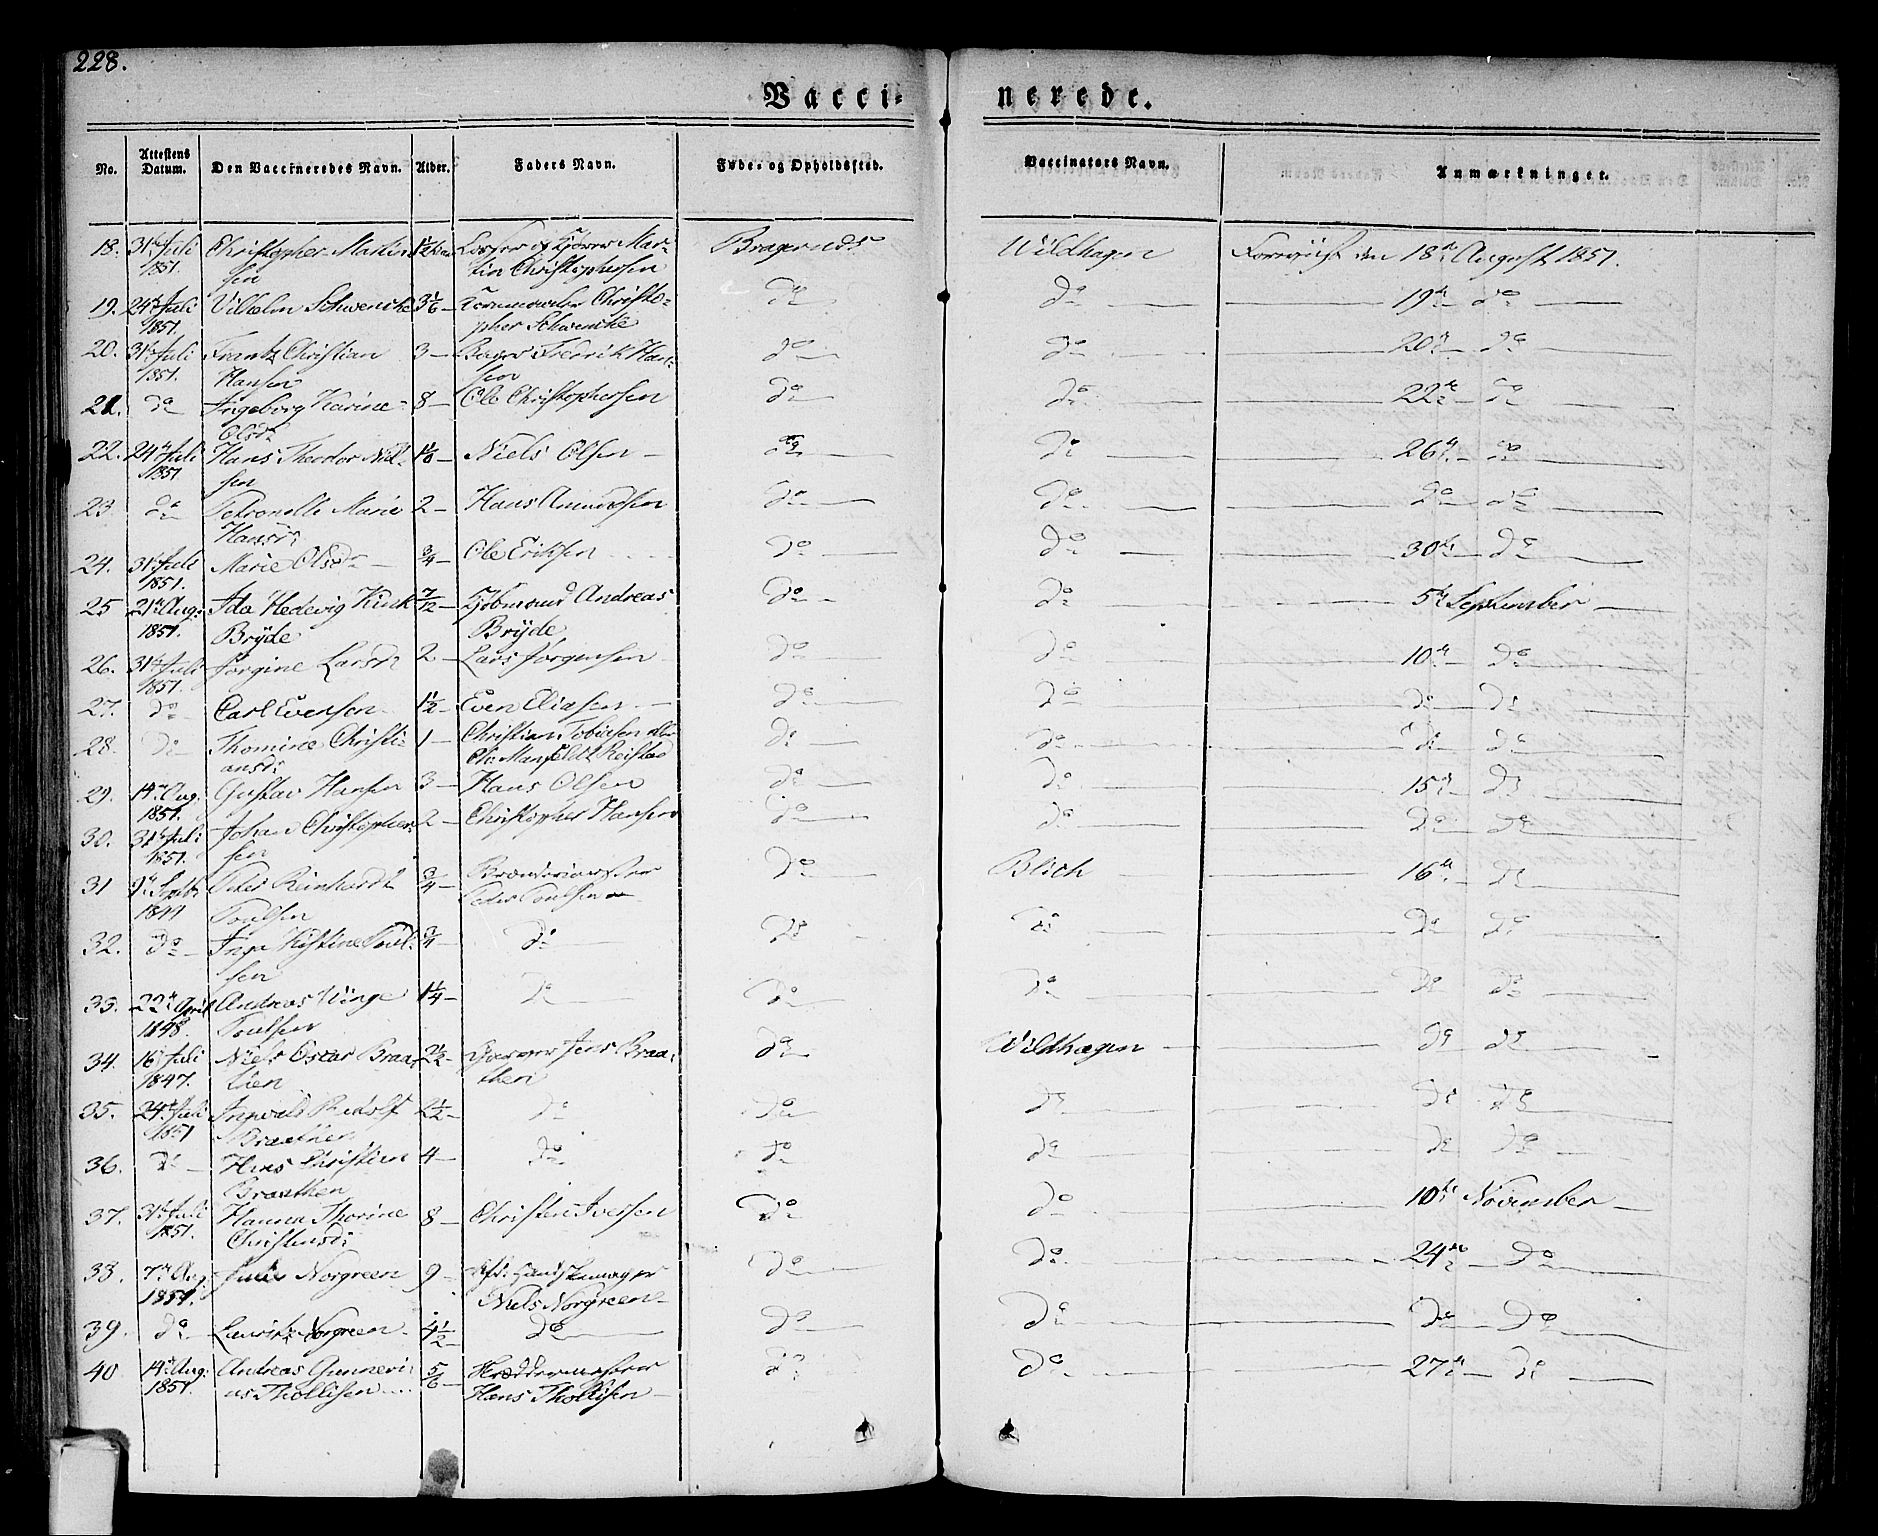 228.
Vacci- nerede.
No. Attestens Datum. Den Vaccineredes Navn. Alder. Faders Navn. Føde- og Opholdssted. Vaccinators Navn. Anmærkninger.
18. 31te Juli Christopher Martin- Mar- Bragernæs Wildhagen Forevist den 18de August 1851.
1851. sen tin Christophersen
19. 24de Juli Vilhelm Schwencke 3 1/6 Christo- do do 19de do
1851. pher Schwencke
20. 31te Juli Frantz Christian 3 Bager Fredrik Han- do do 20de do
1851. Hansen sen
21. do Ingeborg Karine 8 Ole Christophersen do do 22de do
Olsdr
22. 24de Juli Hans Theodor Niel- Niels Olsen do do 26de do
1851. sen
23. do Petronelle Marie 2 Hans Amundsen do do do do
Hansdr
24. 31te Juli Marie Olsdr 3/4 Ole Eriksen do do 30te do
1851.
25 21de Aug: Ida Hedevig Kink 7/12 Kjøbmand Andreas do do 5te September
1851. Bryde Bryde
26. 31te Juli Jørgine Larsdr 2 Lars Jørgensen do do 10de do
1851.
27. do Carl Evensen 1 1/2 Even Eliasen do do do do
28. do Thomine Christi- 1 Christian Tobiesen do do do do
ansdr
29. 14de Aug. Gustav Hansen 3 Hans Olsen do do 15de do
1851.
30. 31te Juli Johan Christopher- 2 Christopher Hansen do do do do
1851. sen
31 9de Septb: Peter Reinhardt 3/4 do Blich 16de do
1844 Poulsen Peder Poulsen
32. do Inga Kistine Poul- 3/4 do do do do do
sen
33. 22de April Andreas Winge 1 1/4 do do do do do
1848. Poulsen
34. 16de Juli Niels Oscar Braa- 2 1/2 Jens Braa- do Wildhagen do do
1847. then then
35. 24de Juli Ingvald Rudolf 2 1/2 do do do do do
1851 Braathen
36. do Hans Christian 4 do do do do do
Braathen
37. 31te Juli Hanna Thorine 8 Christen Iversen do do 10de November
1851. Christensdr
38. 7de Aug: Julie Norgreen 9 Afd: Handskemager do do 24de do
1851. Niels Norgreen
39. do Norgreen 4 1/2 do do do do do
40 14de Aug: Andreas Gunneri- 5/6 do do 27de do
1851. us Thollisen Hans Thollisen